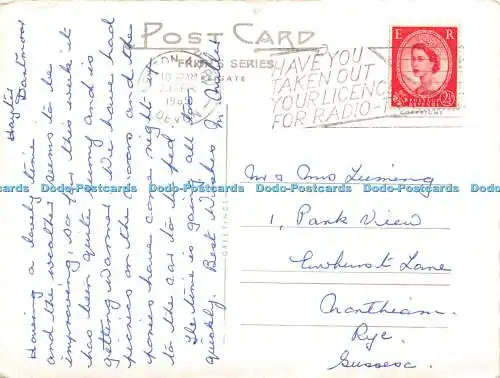 POST CARD
FRITH'S SERIES
REIGATE
HAVE YOU
TAKEN OUT
YOUR LICENCE
FOR RADIO-
10 AM
196
DEVON
E R
2½
COPYRIGHT
GREETINGS
Haytor
Dartmoor
Having a lovely time
weather seems to be
improving, so far this week it
has been quite sunny and is
getting warmer. We have had
picnics on the moors and the
ponies have come right up
to the car to be fed.
The time is going all too
quickly. Best Wishes
Mr & Mrs Leeming
1, Park View
Ewhurst Lane
Northiam
Rye.
Sussex.
Dodo-Postcards Dodo-Postcards Dodo-Postcards Dodo-Postcards Dodo-Postcards